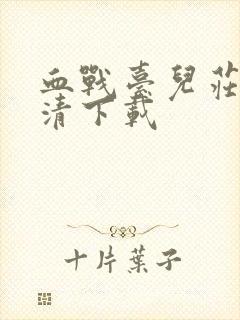 血戰臺兒莊
清下載
十片葉子